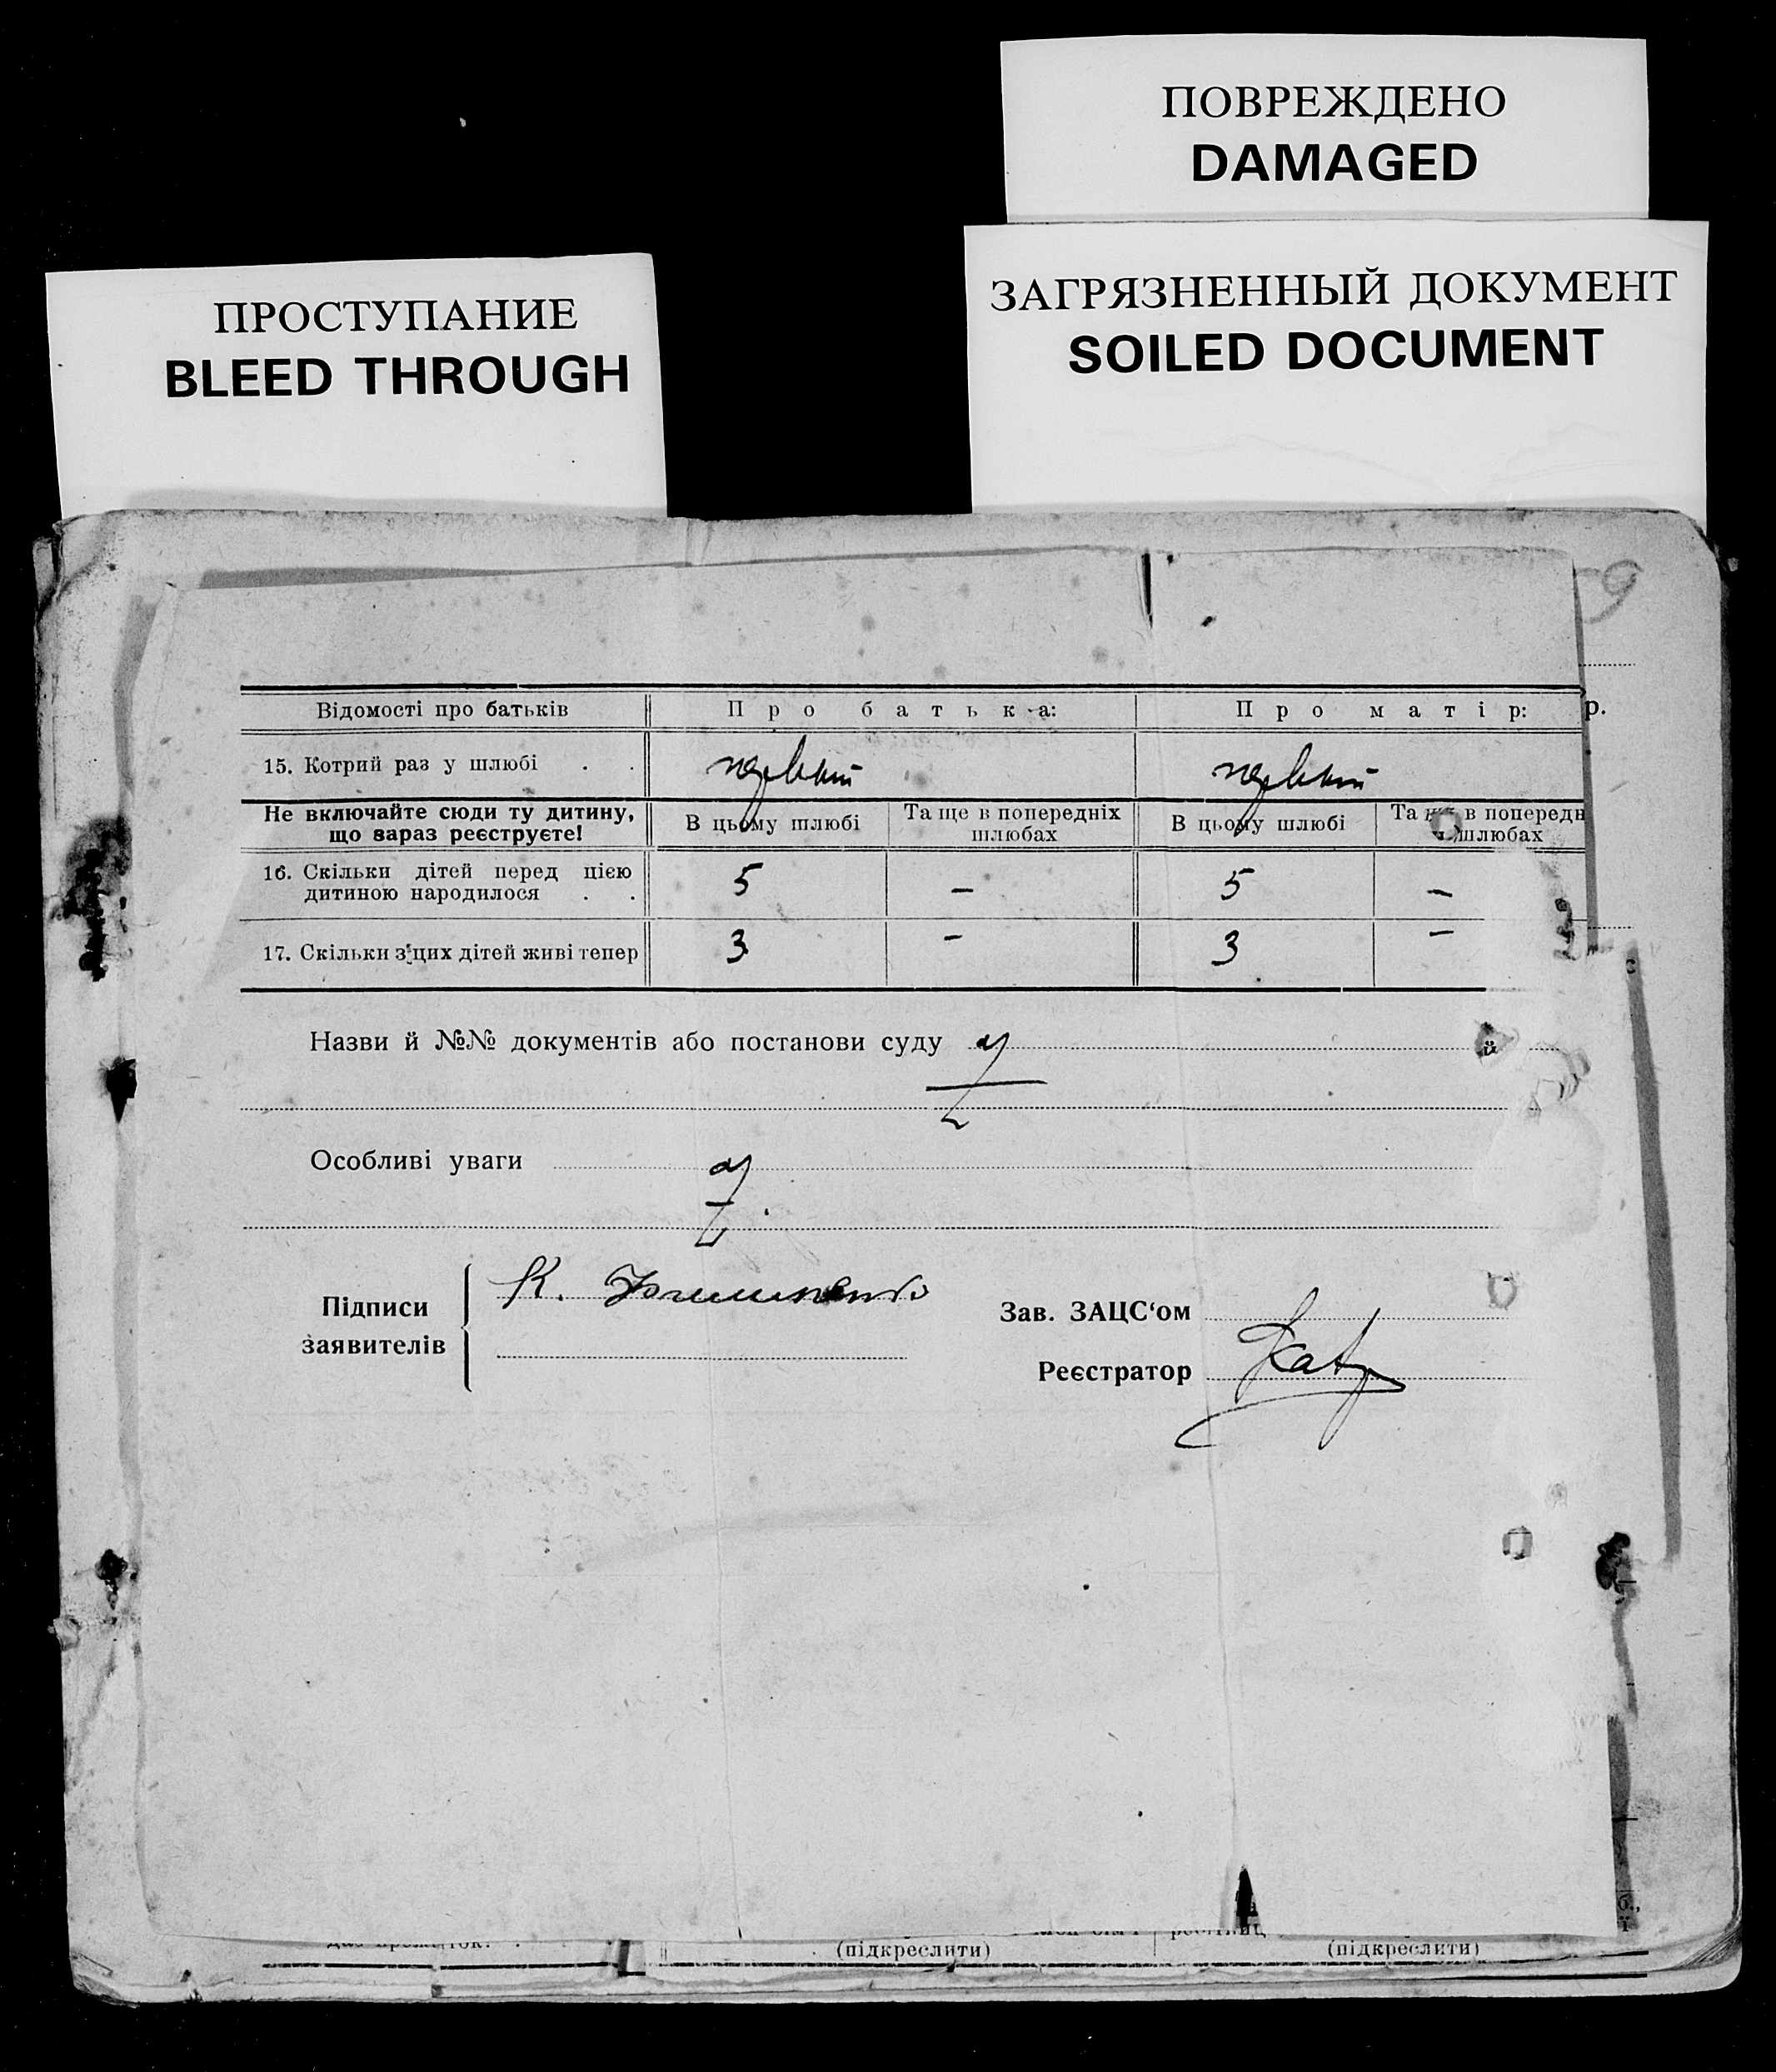 ПОВРЕЖДЕНО
DAMAGED
ПРОСТУПАНИЕ
BLEED THROUGH
ЗАГРЯЗНЕННЫЙ ДОКУМЕНТ
SOILED DOCUMENT
9
Відомості про батьків Про батька: Про матір: р.
15. Котрий раз у шлюбі . . первый первый
Не включайте сюди ту дитину, що вараз реєструєте! В цьому шлюбі Та ще в попередніх шлюбах В цьому шлюбі Та ще в попередн шлюбах
16. Скільки дітей перед цією
дитиною народилося . . 5 – 5 –
17. Скільки з цих дітей живі тепер 3 – 3 –
Назви й №№ документів або постанови суду
Особливі уваги
Підписи
заявителів
К.
Зав. ЗАЦС‘ом
Реєстратор
(підкреслити) (підкреслити)